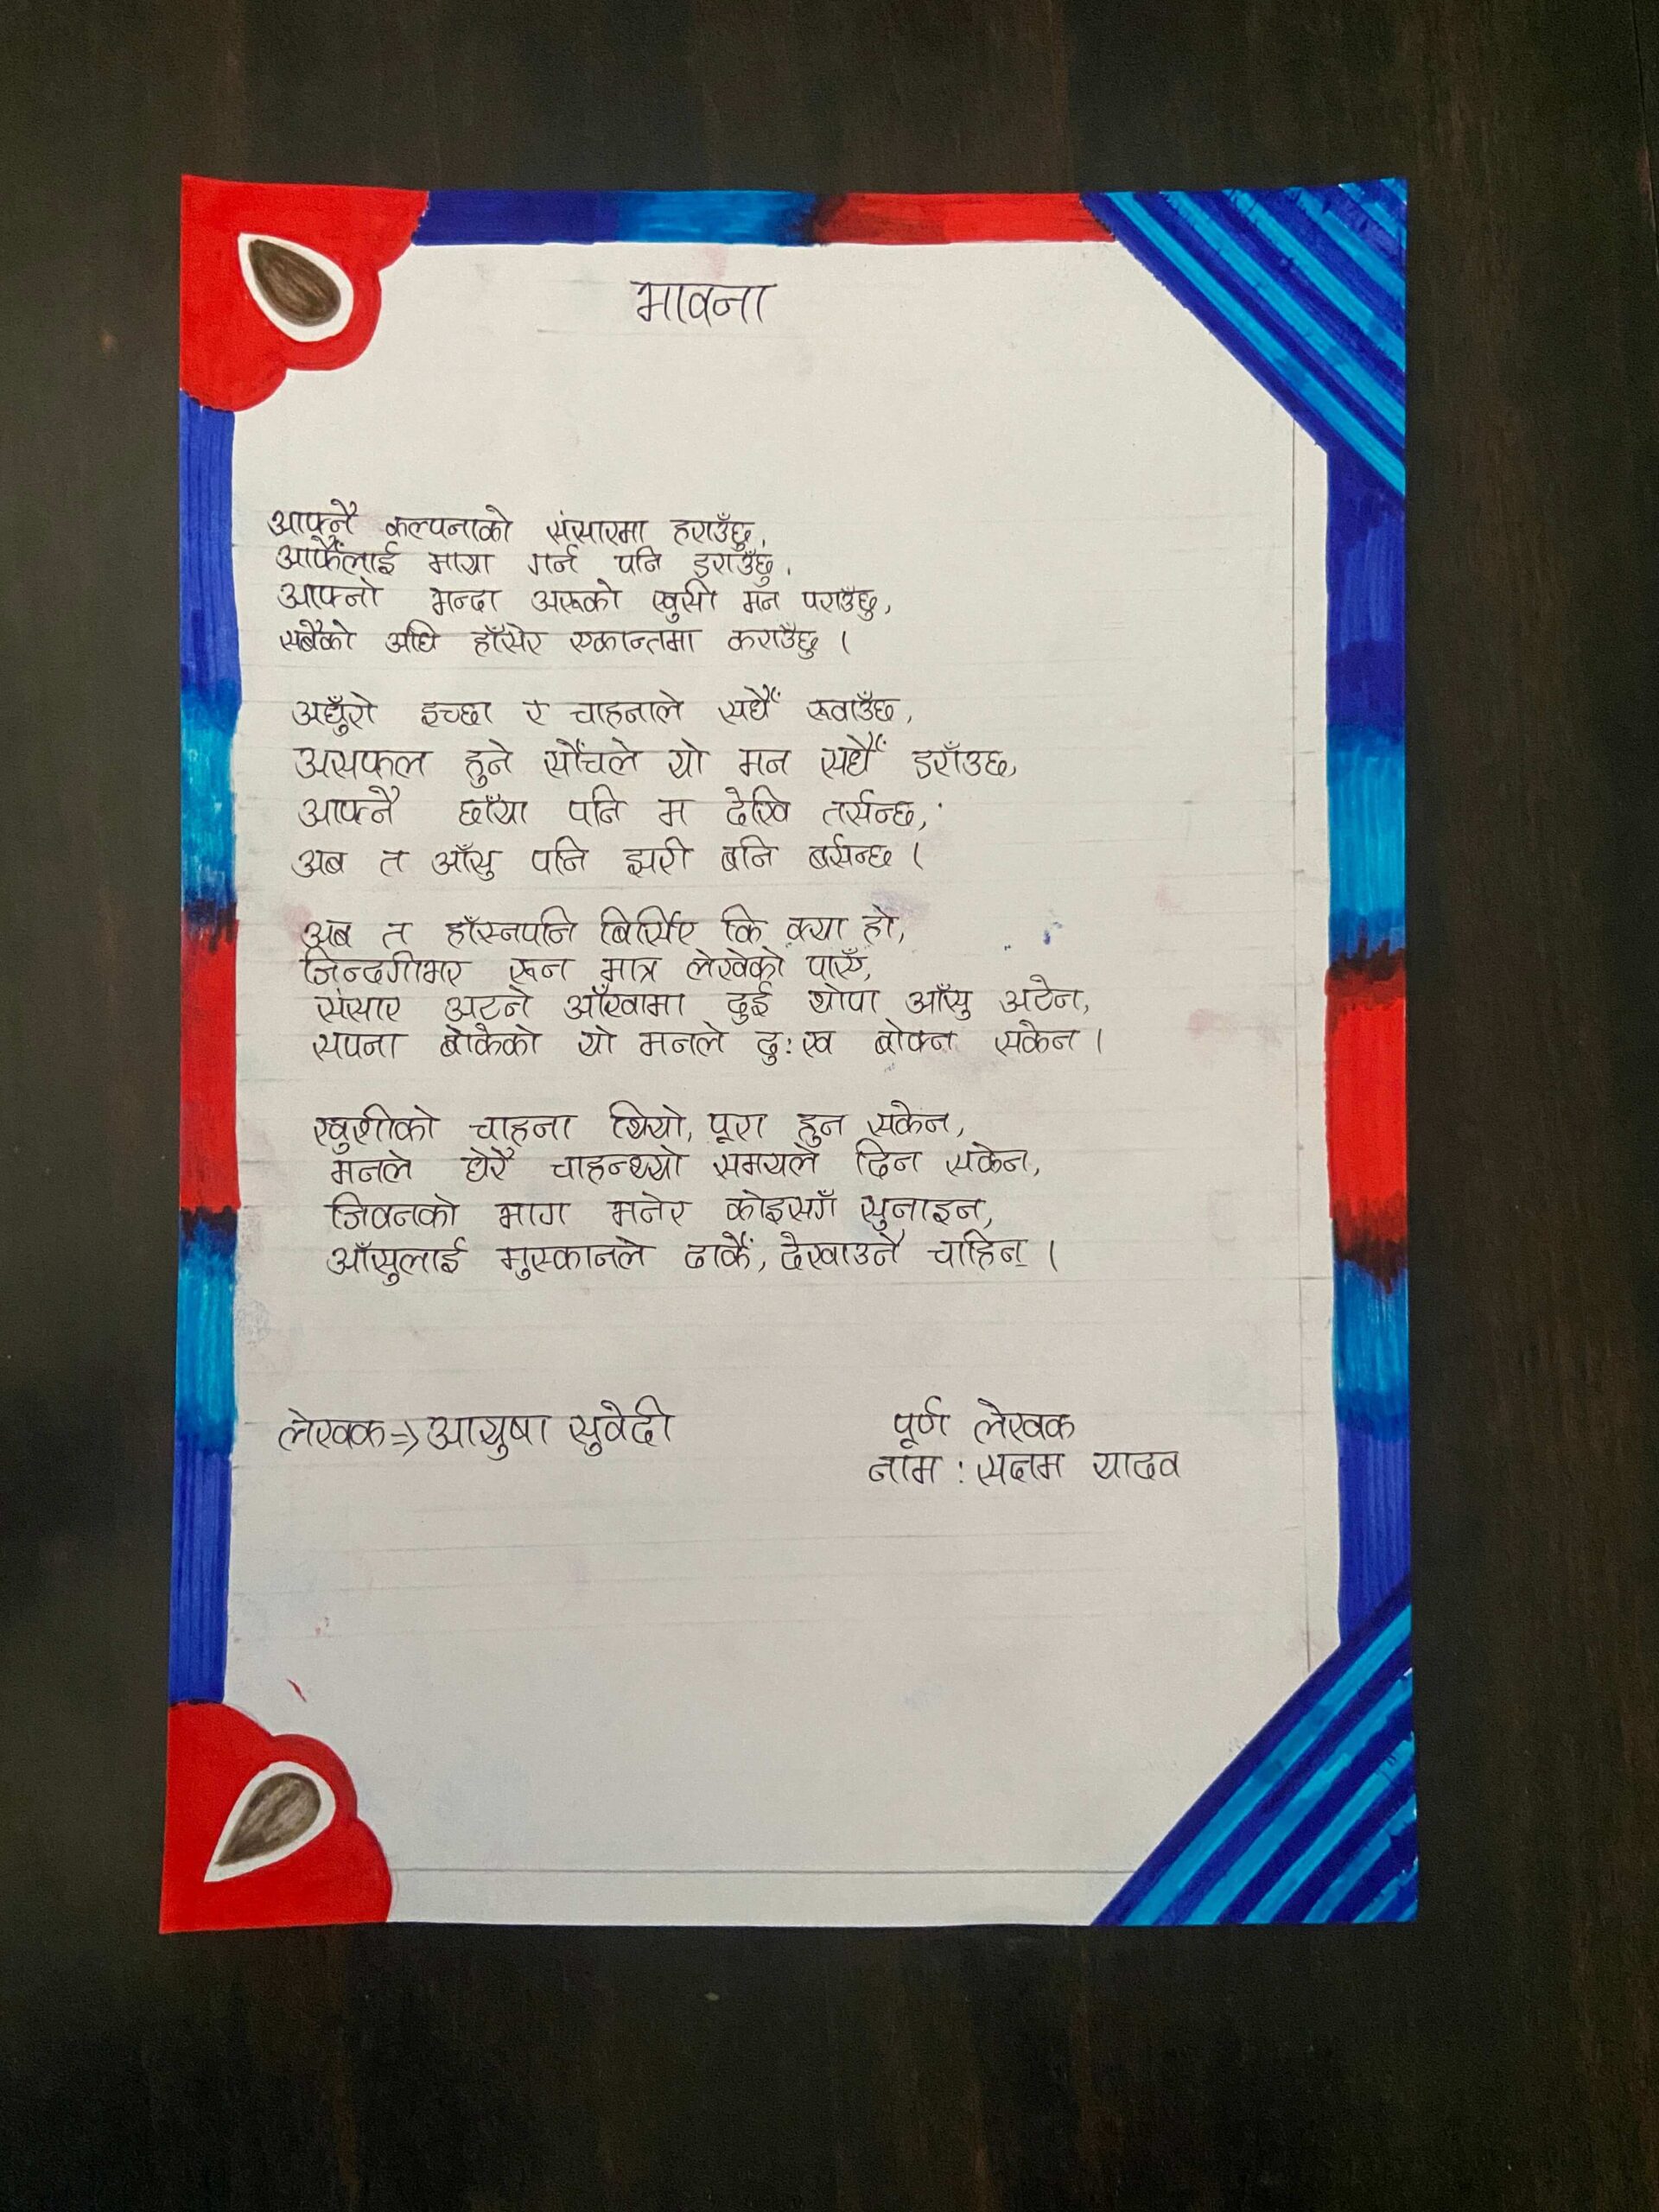 भावना
आफ्नै कल्पनाको संसारमा हराउँछु,
आफैँलाई माया गर्न पनि डराउँछु,
आफ्नो भन्दा अरूको खुसी मन पराउँछु,
सबैको अघि हाँसेर एकान्तमा कराउँछु ।
अधुँरो इच्छा र चाहनाले सधैँ रूवाउँछ,
असफल हुने सोँचले यो मन सधैँ डराँउछ,
आफ्नै छाँया पनि म देखि तर्सन्छ,
अब त आँसु पनि झरी बनि बर्सन्छ ।
अब त हाँस्नपनि बिर्सिए कि क्या हो,
जिन्दगीभर रून मात्र लेखेको पाएँ,
संसार अटने आँखामा दुई थोपा आँसु अटेन,
सपना बोकेको यो मनले दु:ख बोक्न सकेन ।
खुशीको चाहना थियो, पूरा हुन सकेन,
मनले धेरै चाहन्थ्यो समयले दिन सकेन,
जिवनको भाग भनेर कोइसगँ सुनाइन,
आँसुलाई मुस्कानले ढाकैँ, देखाउनै चाहिन ।
लेखक=> आयुषा सुवेदी
पूर्ण लेखक
नाम : सनम यादव